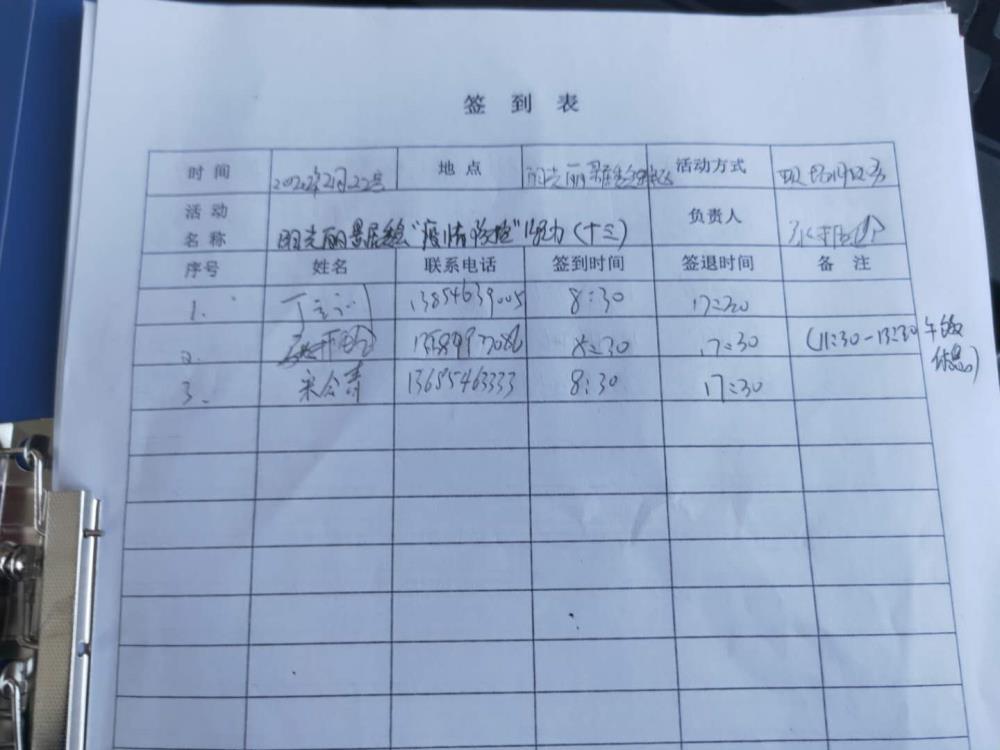 签到表
时间 2020年2月22号 地点 阳光丽景居委 活动方式 现场
活动名称 阳光丽景居委"疫情防控" (十三) 负责人
序号 姓名 联系电话 签到时间 签退时间 备注
1. 13854639005 8:30 17:30
2. 8:30 17:30 (11:30-13:30 午饭休息)
3. 宋会青 13655463333 8:30 17:30